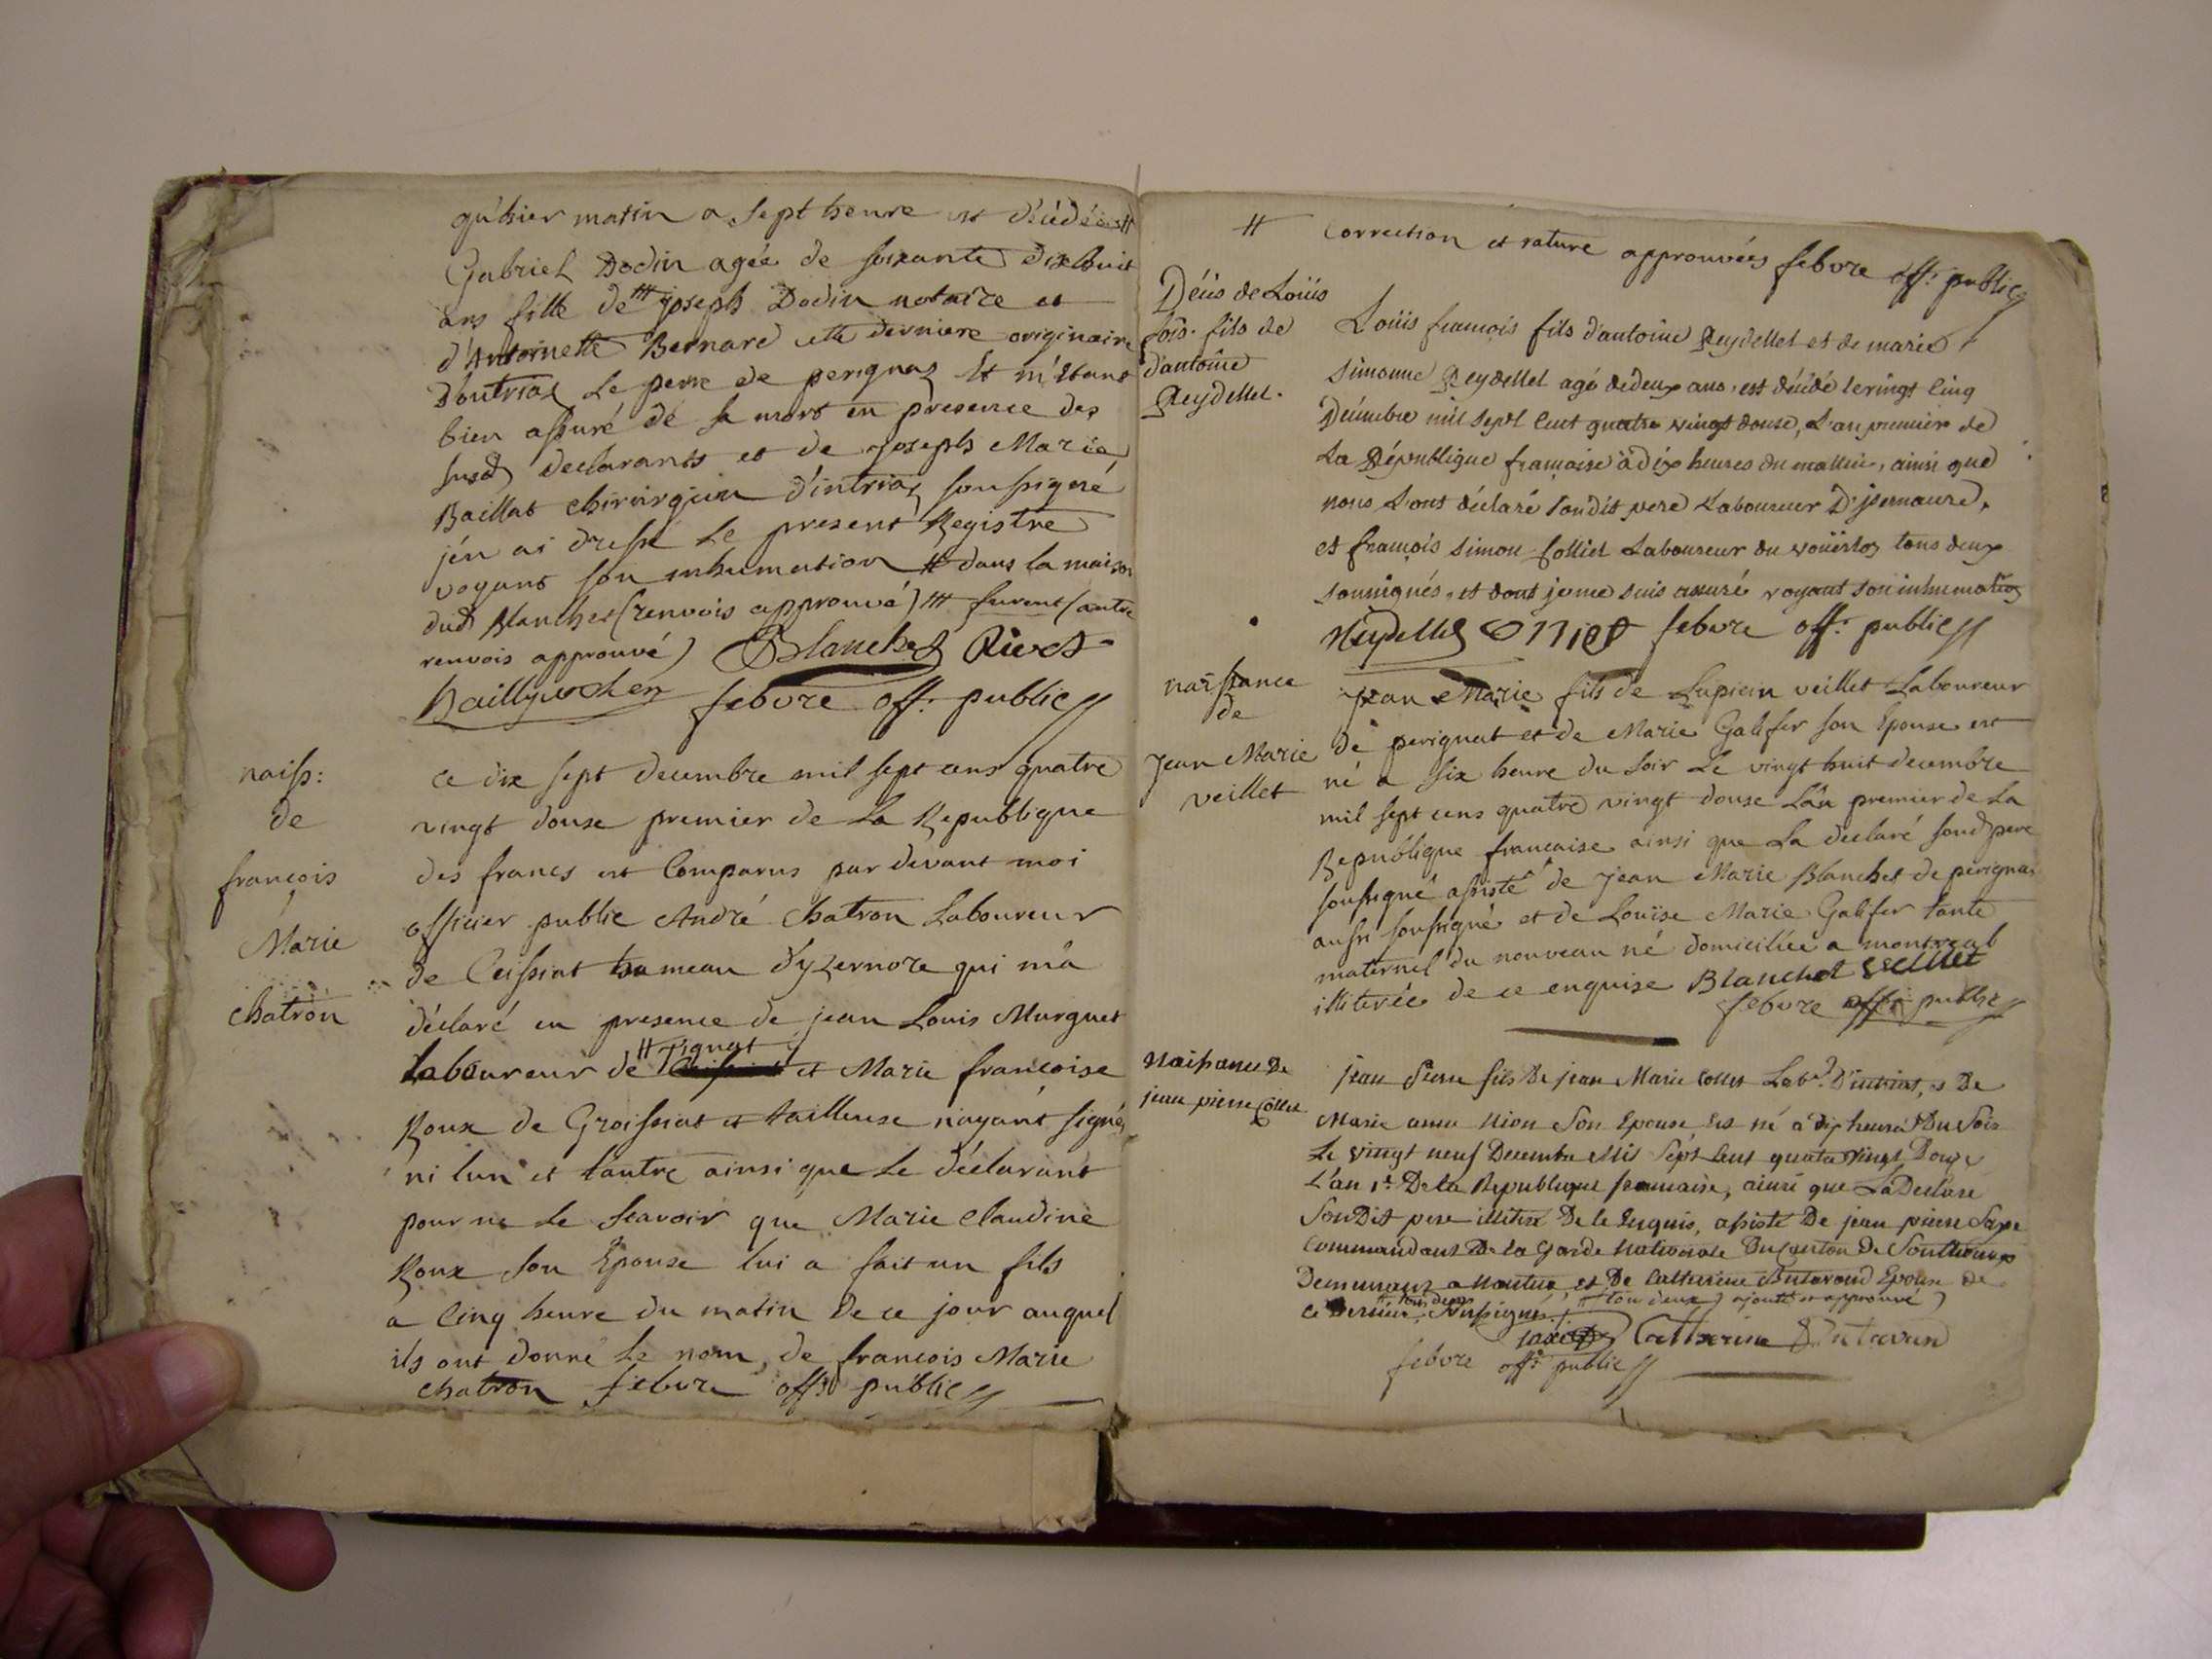 qu'hier matin a sept heure est décédée #
Gabriel Dodin agée de soixante dixhuit
ans fille de ## joseph Dodin notaire et
d'Antoinette Bernard cette derniere originaire
D'intriaz Le pere de perignaz Et m'étant
bien assuré de sa mort en presence des
susd declarants et de joseph Marie
Baillat chirurgien d'intriaz soussigné
j'en ai dressé Le present Registre
voyant son inhumation # dans la maison
dud Blanchet (renvois approuvé) ## furent (autre
renvois approuvé) Blanchet Rivet
febvre off. public
naiss:
de
francois
Marie
chatron
ce dix sept decembre mil sept cens quatre
vingt douse premier de La Republique
des francs est Comparus par devant moi
officier public André Chatron Laboureur
de Ceissiat hameau d'yzernore qui m'a
déclaré en presence de jean Louis Murguet
Laboureur de # Tignat et Marie françoise
Roux de Groissiat et tailleuse n'ayant signé
ni lun et lautre ainsi que Le déclarant
pour ne Le scavoir que Marie Claudine
Roux son Epouse lui a fait un fils
a Cinq heure du matin de ce jour auquel
ils ont donné Le nom de francois Marie
chatron febvre off. public
# Correction et rature approuvées febvre off. public
Décis de Loüis
fois. fils de
d'antoine
Reydellet.
Loüis francois fils d'antoine Reydellet et de marie
simonne Reydellet agé de deux ans, est décédé le vingt cinq
Décembre mil sept cent quatre vingt douse, L'an premier de
La République francaise à dix heures du mattin, ainsi que
nous L'ont déclaré son dit pere Laboureur D'isernaure,
et francois simon folliet Laboureur du voüerloz tous deux
soussignés, et dont je me suis assuré voyant son inhumation
Reydellet febvre off. public
naissance
de
Jean Marie
veillet
Jean Marie fils de Lupicin veillet Laboureur
de perignat et de Marie Galifer son Epouse est
né a six heure du soir Le vingt huit decembre
mil sept cens quatre vingt douse L'an premier de La
Republique francaise ainsi que La declaré sond pere
soussigné assisté de Jean Marie Blanchet de perignat
aussi soussigné et de Louise Marie Galifer tante
maternel du nouveau né domiciliée a montreal
illiterée de ce enquise Blanchet veillet
febvre off. public
Naissance De
jean pierre Collet
jean Pierre fils De jean Marie Collet Lab.r D'intriat, et De
Marie anne Nion Son Epouse Est né à dix heures Du Soir
Le vingt neuf Decembre Mil Sept Cent quatre vingt Douze
L'an 1.er De la Republique francaise, ainsi que La Declaré
Son Dit pere illitéré De ce Enquis, assisté De jean pierre Saxe
Commandant De la Garde Nationale Du Canton De Sonthonnax
Demeurant a Nantua, et De Catherine Butavand Epouse de
ce Dernier, # tous deux Soussignés. # (tou deux) ajouté et approuvé)
Catherine Butavand
febvre off. public